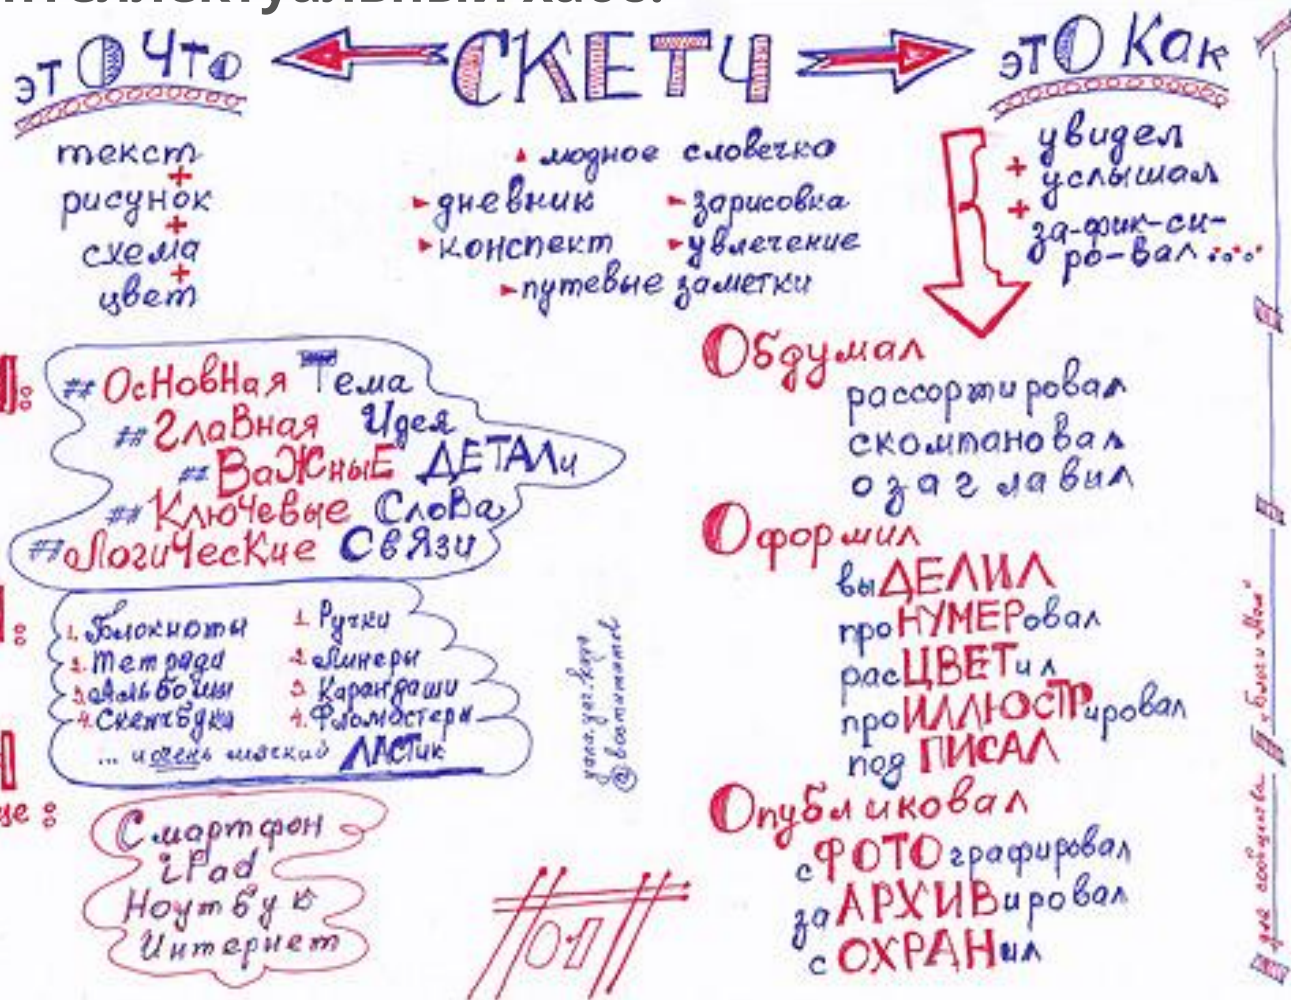 СКЕТЧ
этО ЧТо
текст
+
рисунок
+
схема
+
цвет
модное словечко
дневник
зарисовка
конспект
увлечение
путевые заметки
этО Как
увидел
+ услышал
+ за-фик-си-
ро-вал.....
## ОсНовНая Тема
## ГлаВная Идея
## ВаЖНыЕ ДЕТАЛи
## КлюЧевые СлоВа
## ЛогиЧесКие СвЯзи
1. Блокноты
2. Тетради
3. Альбомы
4. Скетчбуки
1. Ручки
2. Линеры
3. Карандаши
4. Фломастеры
... и очень мягкий ЛАСТик
це :
Смартфон
iPad
Ноутбук
Интернет
Обдумал
рассортировал
скомпановал
озаглавил
Оформил
выДЕЛИЛ
проНУМЕРовал
расЦВЕТил
проИЛЛЮСТРировал
подПИСАЛ
Опубликовал
сФОТОграфировал
заАРХИВировал
сОХРАНил
01
для сообщества